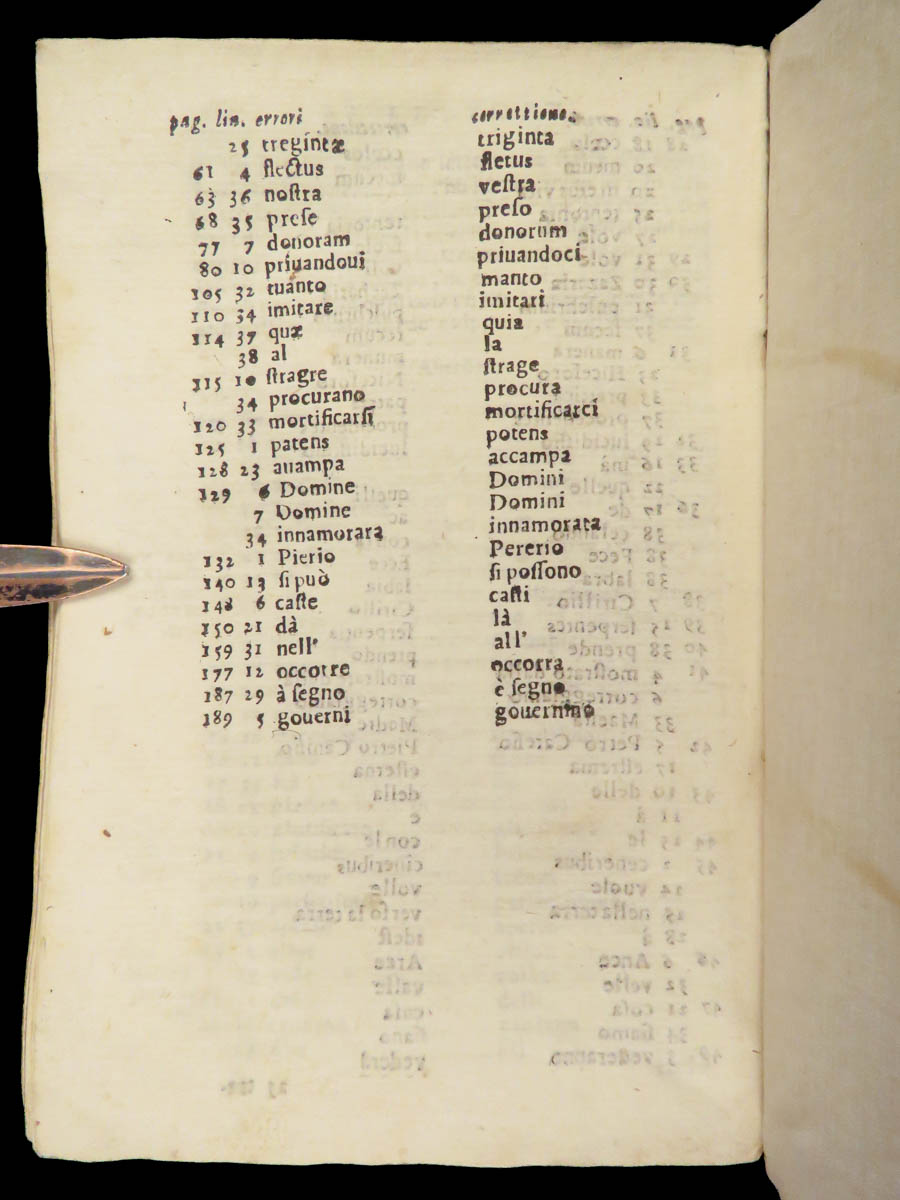 pag. lin. errori correttione.
25 tregintæ triginta
61 4 flectus fletus
63 36 noſtra veſtra
68 35 preſe preſo
77 7 donoram donorum
80 10 priuandoui priuandoci
105 32 tuanto manto
110 34 imitare imitari
114 37 quæ quia
38 al la
115 10 ſtragre ſtrage
34 procurano procura
120 33 mortificarſi mortificarci
125 1 patens potens
128 23 auampa accampa
129 6 Domine Domini
7 Domine Domini
34 innamorara innamorata
132 1 Pierio Pererio
140 13 ſi può ſi poſſono
148 6 caſte caſti
150 21 dà là
159 31 nell' all'
177 12 occorre occorra
187 29 à ſegno è ſegno
189 5 gouerni gouernino